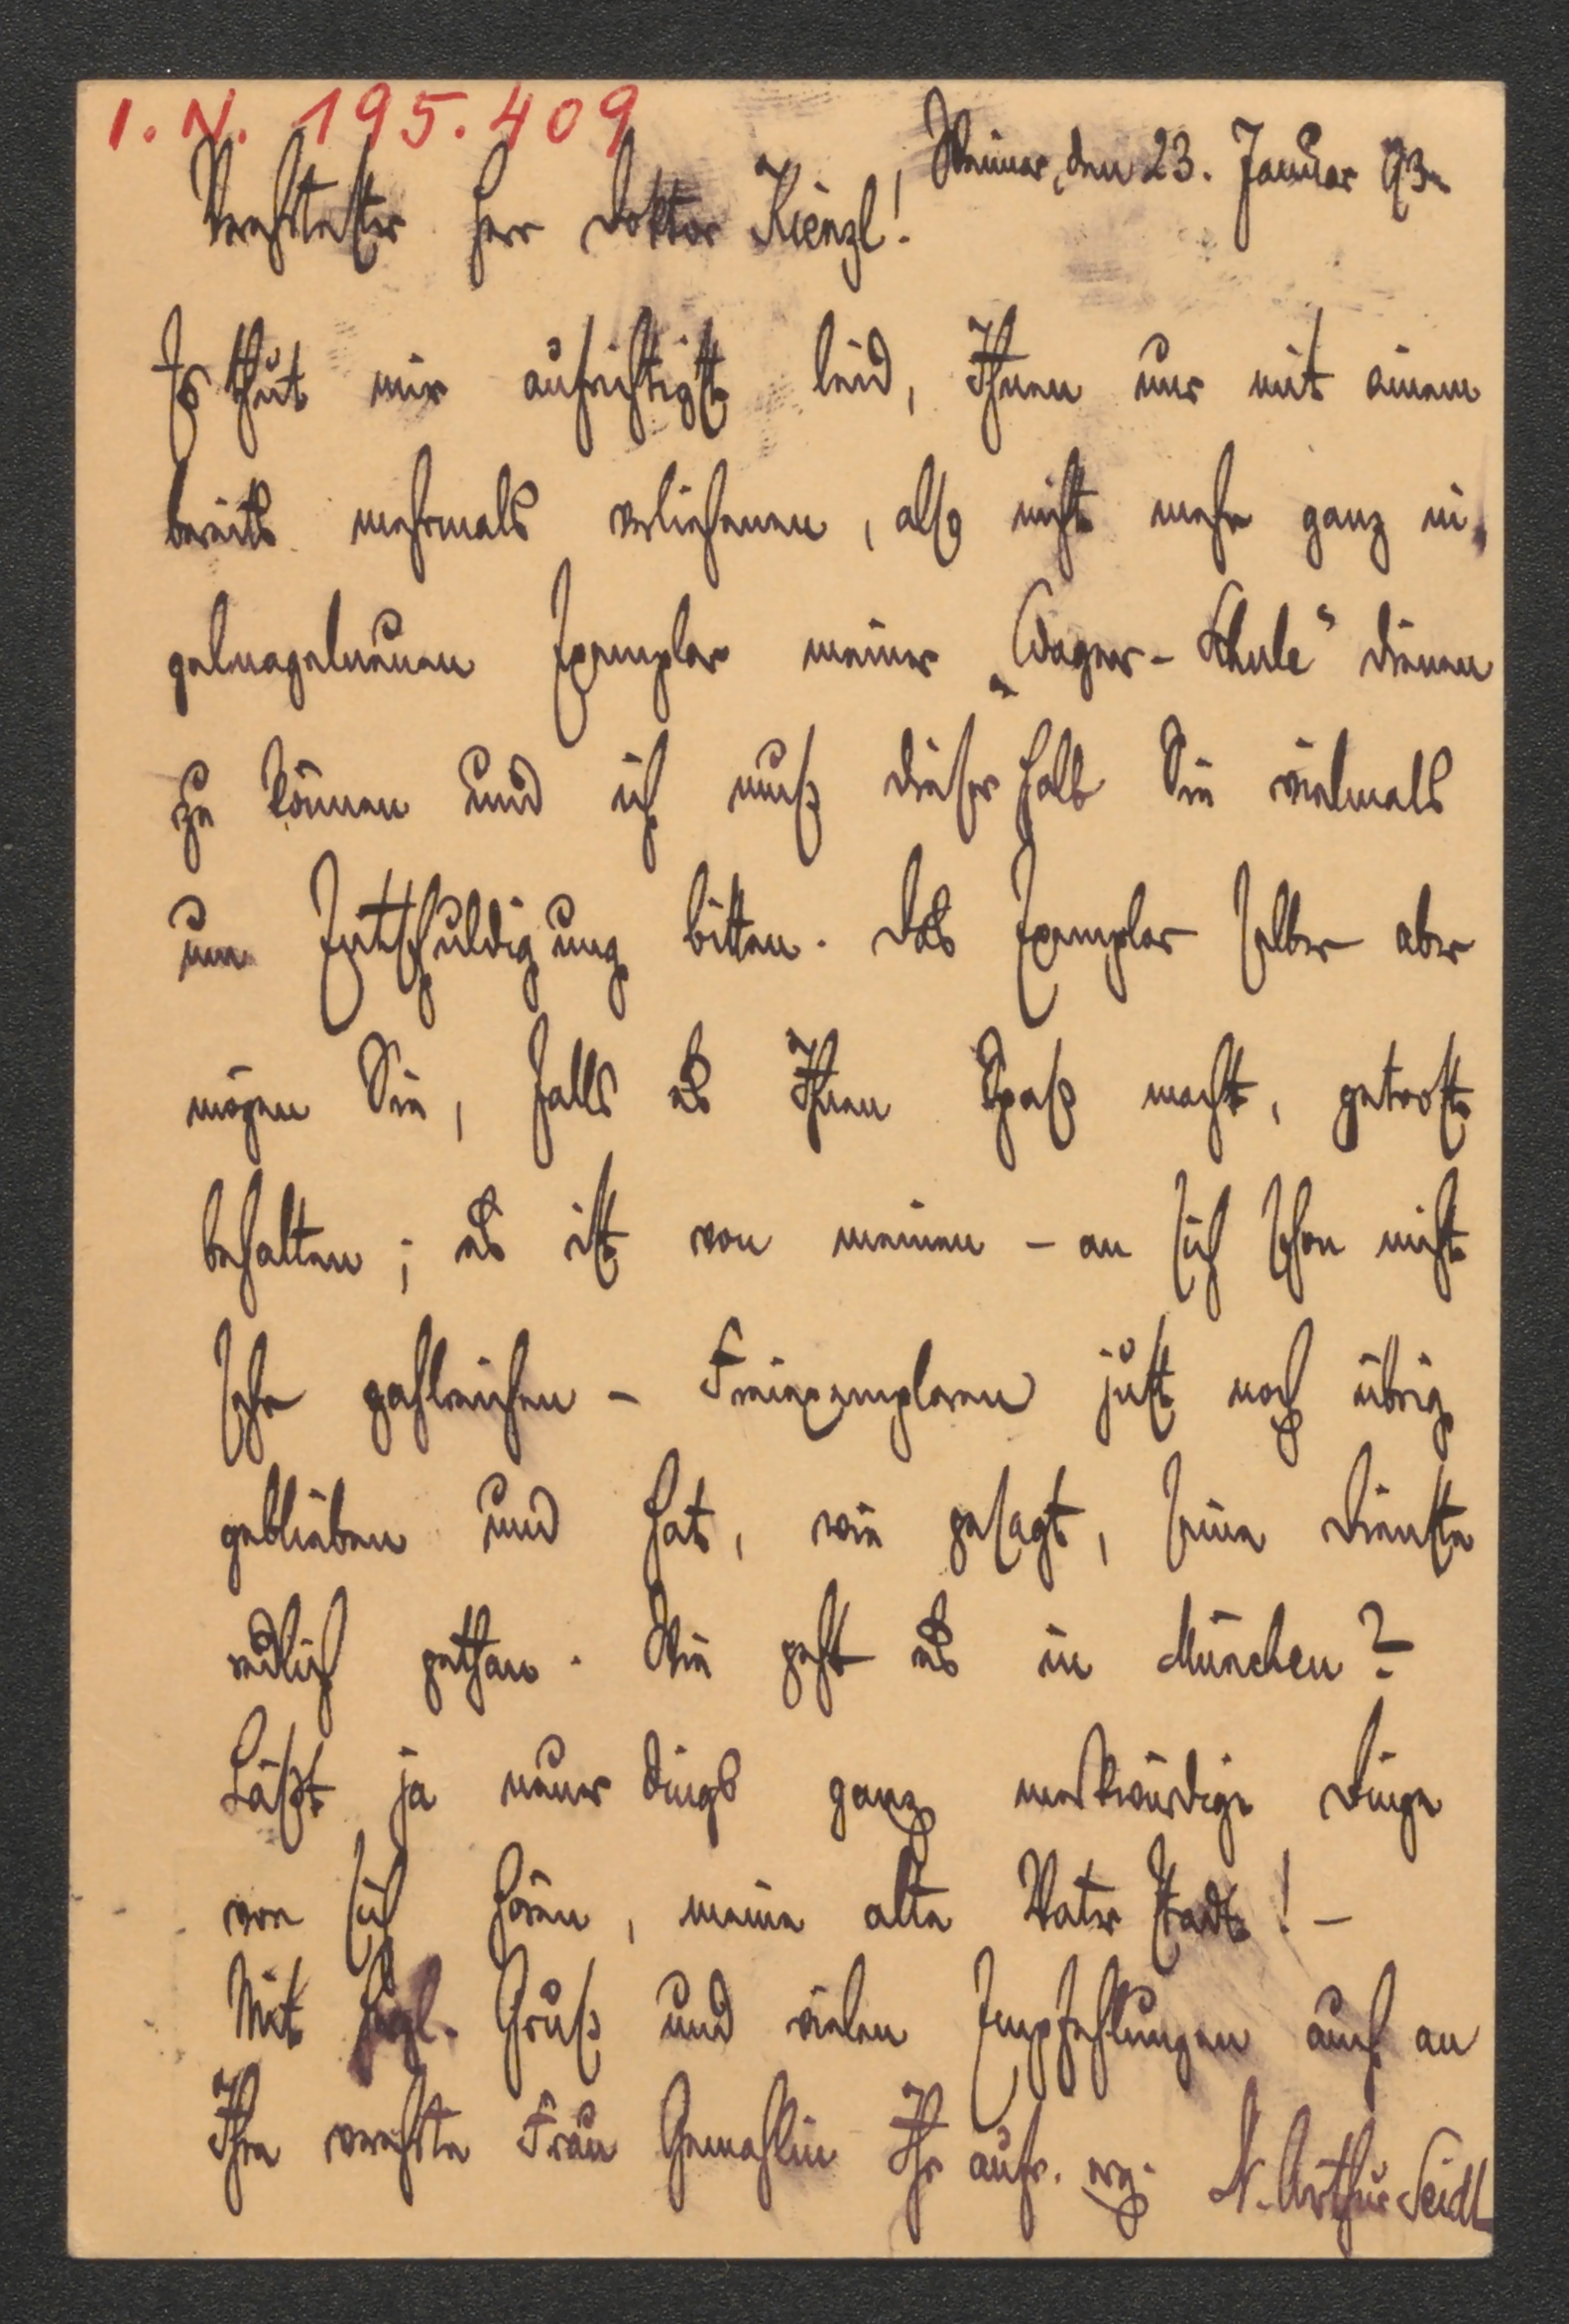 I. N. 195.409
Weimar, den 23. Januar 93.
Verehrtester Herr Doktor Kienzl!
Es thut mir aufrichtigst leid, Ihnen nur mit einem
bereits mehrmals verliehenen, also nicht mehr ganz ni-
gelnagelneuen Exemplar meiner „Wagner-Schule" dienen
zu können und ich muß dieserhalb Sie vielmals
um Entschuldigung bitten. Das Exemplar selber aber
mögen Sie, falls es Ihnen Spaß macht, getrost
behalten; es ist von meinen – an sich schon nicht
sehr zahlreichen – Freiexemplaren just noch übrig
geblieben und hat, wie gesagt, seine Dienste
redlich gethan. Wie geht es in München?
Läßt ja neuerdings ganz merkwürdige Dinge
von sich hören, meine alte Vaterstadt! –
Mit herzl. Gruß und vielen Empfehlungen auch an
Ihre verehrte Frau Gemahlin Ihr aufr. erg. Dr. Arthur Seidl